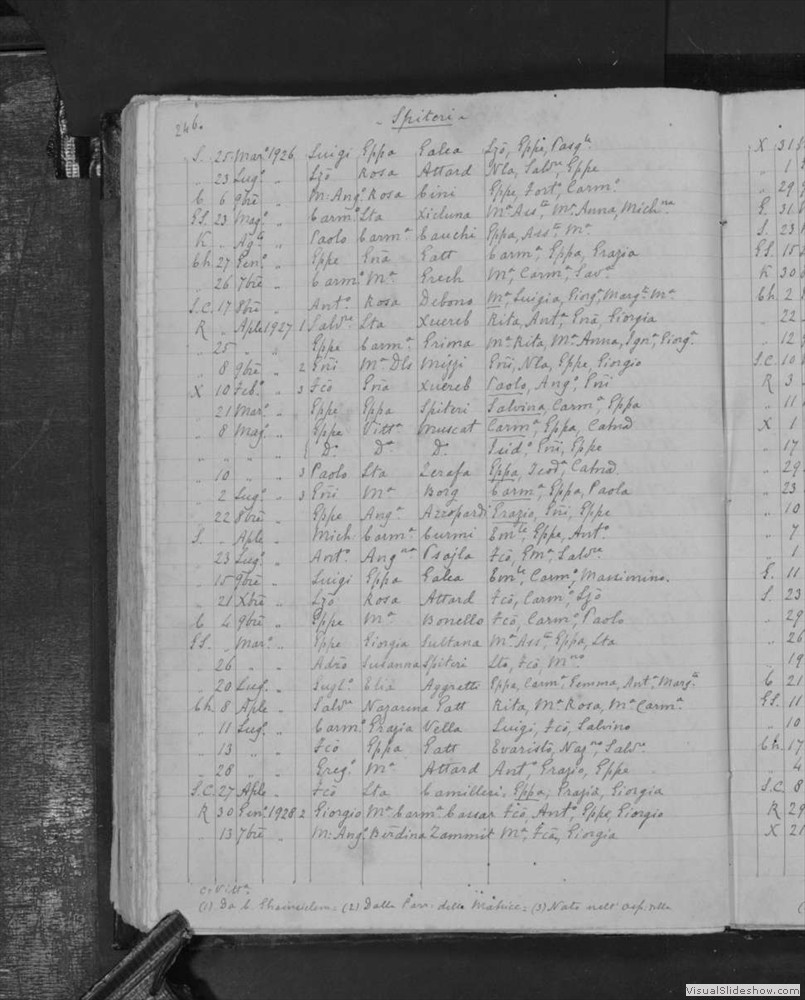 246.
- Spiteri -
S. 25 Marº 1926 Luigi Eppa Galea Ljō, Eppe, Pasqle
" 23 Lugº " Ljō Rosa Attard Nla, Salvre, Eppe
C 6 9bre " M: Angº Rosa Cini Eppe, Fortº, Carmº
GS. 23 Magº " Carmº Lta Xicluna Mª Assta, Mª Anna, Michna
K " Agto " Paolo Carmª Cauchi Eppa, Assta, Mª
Ch 27 Genº " Eppe Gna Gatt Carmª, Eppa, Grazia
" 26 7bre " Carmº Mª Grech Mª, Carmª, Savª
S.C. 17 8bre " Antº Rosa Debono Mª, Luigia, Giorgª, Margta, Mª
R " Aple 1927 1 Salvre Lta Xuereb Rita, Antª, Gna, Giorgia
" 25 " " Eppe Carmª Grima Mª Rita, Mª Anna, Ignª, Giorgª
" 8 9bre " 2 Gni Mª Dls Mizzi Gni, Nla, Eppe, Giorgio
X 10 Febº " 3 Fcō Gna Xuereb Paolo, Angº, Gni
" 21 Marº " Eppe Eppa Spiteri Salvina, Carmª, Eppa
" 8 Magº " Eppe Vittª Muscat Carmª, Eppa, Catna
" " " " Dº Dª Dº Gni, Eppe
" 10 " " 3 Paolo Lta Zerafa Eppa, Teodª, Catna
" 2 Lugº " 3 Gni Mª Borg Carmª, Eppa, Paola
" 22 8bre " Eppe Angª Azzopardi Grazio, Gni, Eppe
S. " Aple " Mich Carmª Curmi Emle, Eppe, Antº
" 23 Lugº " Antº Angna Psajla Fcō, Gmª, Salvre
" 15 9bre " Luigi Eppa Galea Emle, Carmº, Massimino.
" 21 Xbre " Ljō Rosa Attard Fcō, Carmº, Ljō
C 4 9bre " Eppe Mª Bonello Fcō, Carmº, Paolo
GS. " Marº " Eppe Giorgia Sultana Mª Assta, Eppa, Lta
" 26 " " Adrō Susanna Spiteri Lto, Fcō, Mno
" 20 Lugº " Euglº Elia Aggrette Eppa, Carmª, Gemma, Antª, Margta
Ch 8 Aple " Salvre Nazarena Gatt Rita, Mª Rosa, Mª Carmª
" 11 Lugº " Carmº Grazia Vella Luigi, Fcō, Salvino
" 13 " " Fcō Eppa Gatt Evaristo, Nazno, Salvre
" 26 " " Gregº Mª Attard Antº, Grazio, Eppe
S.C. 27 Aple " Fcō Lta Camilleri Eppa, Grazia, Giorgia
R 30 Genº 1928 2 Giorgio Mª Carmª Cassar Fcō, Antº, Eppe, Giorgio
" 13 7bre " M: Angº Berdina Zammit Mª, Fca, Giorgia
C. Vittª
(1) Da C. = (2) Dalla Parr. della Matrice = (3) Nato nell'
X 31
" 1
" 29
G. 31
S. 23
GS. 15
K 30
Ch 2
" 22
" 12
S.C 10
R 3
" 11
X 1
" 17
" 29
" 23
" 10
" 7
" 1
G. 11
S. 23
" 29
" 26
" 19
C 21
GS. 11
" 10
Ch. 17
" 4
S.C 8
R 29
X 21
VisualSlideshow.com